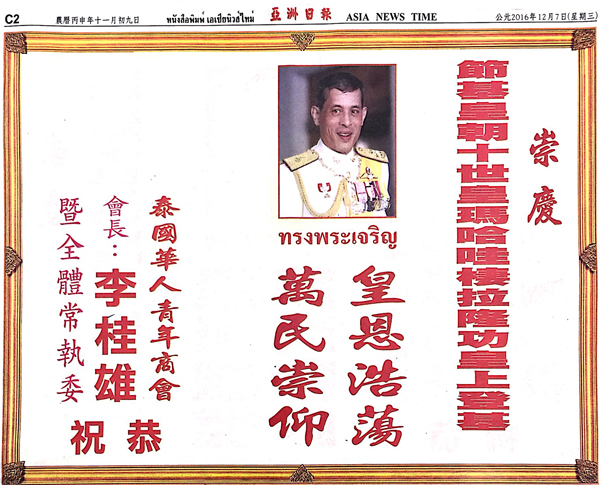 C2 農曆丙申年十一月初九日 หนังสือพิมพ์ เอเชียนิวส์ไทม์ 亞洲日報 ASIA NEWS TIME 公元2016年12月7日(星期三)
崇慶
節基皇朝十世皇瑪哈哇棲拉隆功皇上登基
ทรงพระเจริญ
皇恩浩蕩
萬民崇仰
泰國華人青年商會
會長：李桂雄
暨全體常執委
恭祝